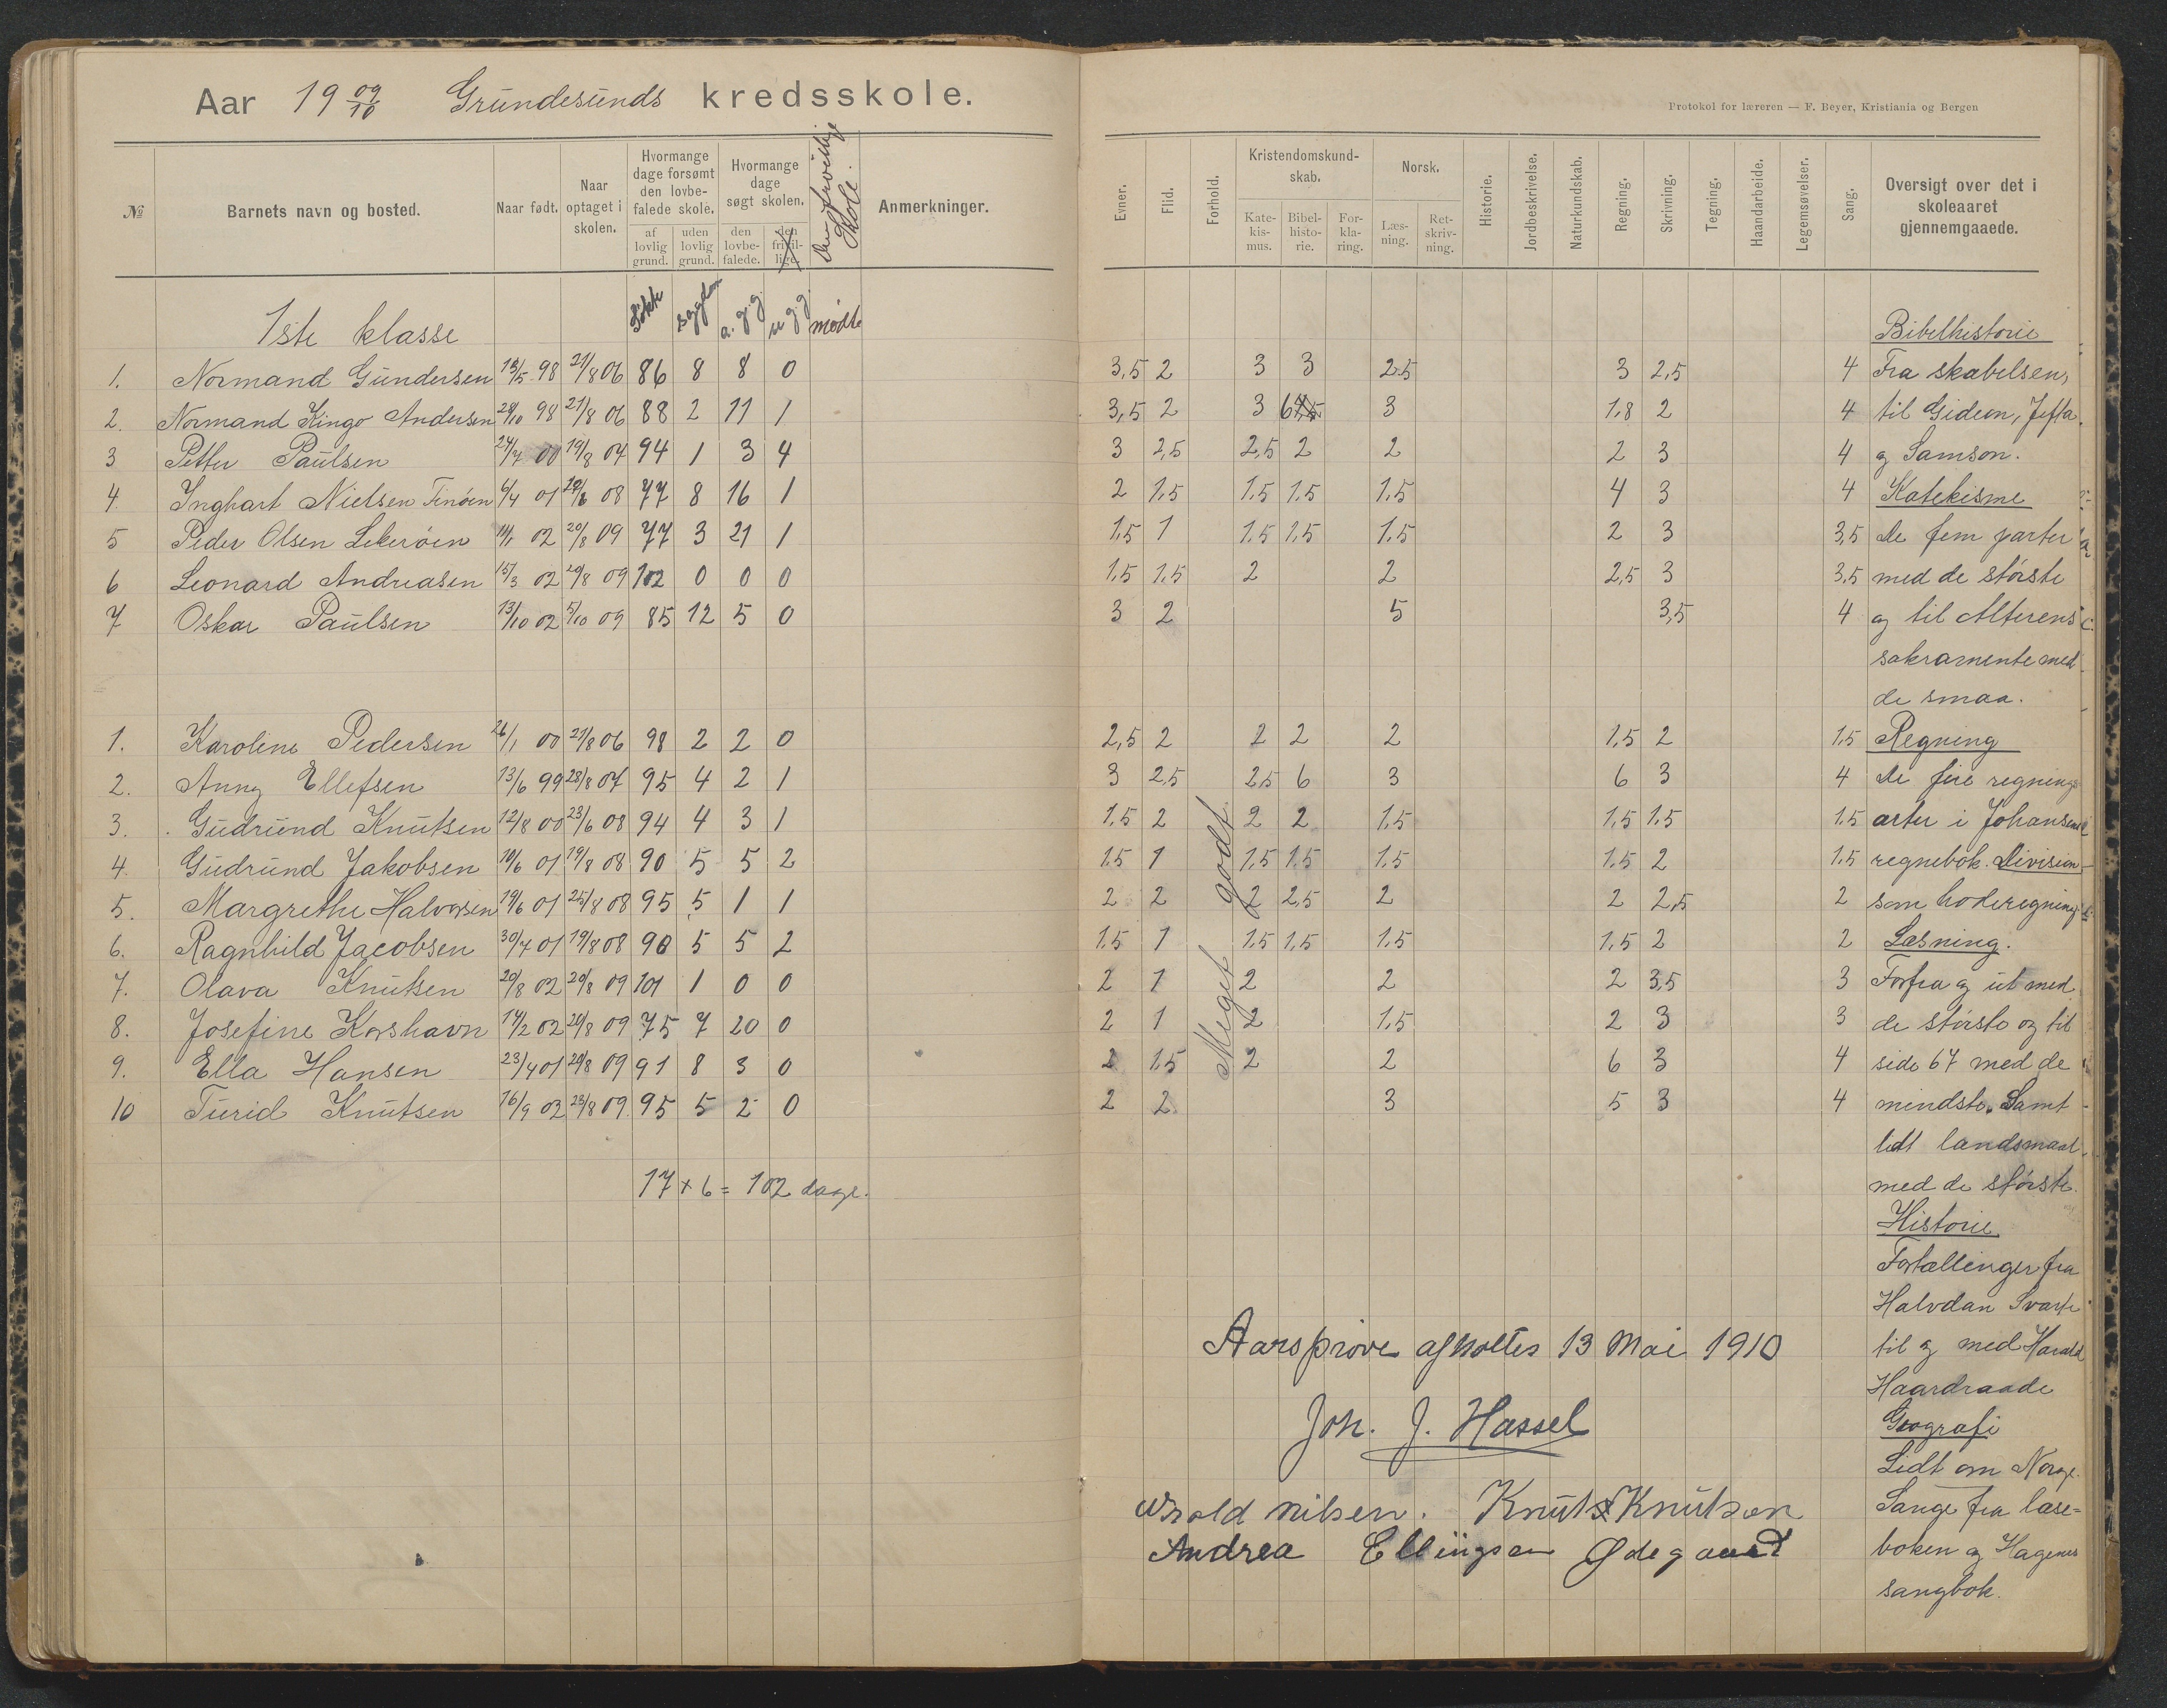 Aar 19 09/10 Grundesunds kredsskole.
№ Barnets navn og bosted. Naar født. Naar optaget i skolen. Hvormange dage forsømt den lovbefalede skole. Hvormange dage søgt skolen. Den frivillige Skole. Anmerkninger.
af lovlig grund. uden lovlig grund. den lovbefalede. den frivillige.
1ste klasse søkt sygdom a. g. g. u g g mødte
1. Normand Gundersen 13/5 98 21/8 06 86 8 8 0
2. Normand Kingo Andersen 28/10 98 21/8 06 88 2 11 1
3 Petter Paulsen 24/7 00 19/8 07 94 1 3 4
4 Inghart Nielsen Finøen 6/4 01 08 77 8 16 1
5 Peder Olsen Lekerøen 11/1 02 20/8 09 77 3 21 1
6 Leonard Andreasen 15/3 02 20/8 09 102 0 0 0
7 Oskar Paulsen 13/10 02 5/10 09 85 12 5 0
1. Karoline Pedersen 26/1 00 21/8 06 98 2 2 0
2. Anny Ellefsen 13/6 99 28/8 07 95 4 2 1
3. Gudrund Knutsen 12/8 00 23/6 08 94 4 3 1
4. Gudrund Jakobsen 10/6 01 19/8 08 90 5 5 2
5. Margrethe Halvorsen 19/6 01 25/8 08 95 5 1 1
6. Ragnhild Jacobsen 30/4 01 19/8 08 90 5 5 2
7. Olava Knutsen 20/8 02 20/8 09 101 1 0 0
8. Josefine Korshavn 14/2 02 20/8 09 75 7 20 0
9. Ella Hansen 23/4 01 20/8 09 91 8 3 0
10 Turid Knutsen 16/9 02 23/8 09 95 5 2 0
17 × 6 = 102 dage.
Protokol for læreren — F. Beyer, Kristiania og Bergen
Evner. Flid. Forhold. Kristendomskundskab. Norsk. Historie. Jordbeskrivelse. Naturkundskab. Regning. Skrivning. Tegning. Haandarbeide. Legemsøvelser. Sang. Oversigt over det i skoleaaret gjennemgaaede.
Katekismus. Bibelhistorie. Forklaring. Læsning. Retskrivning.
Bibelhistorie
3,5 2 3 3 2.5 3 2,5 4 Fra skabelsen,
3,5 2 3 3 1,8 2 4 til Gideon, Jefta
3 2,5 2,5 2 2 2 3 4 og Samson.
2 1,5 1.5 1.5 1.5 4 3 4 Katekisme
1.5 1 1.5 1,5 1.5 2 3 3,5 De fem parter
1,5 1.5 2 2 2,5 3 3.5 med de største
3 2 5 3,5 4 og til Alterens
sakramente med
de smaa.
2,5 2 2 2 2 1,5 2 1.5 Regning
3 2,5 2,5 6 3 6 3 4 De fire regnings
1.5 2 2 2 1,5 1,5 1.5 1.5 arter i Johansens
1.5 1 1,5 1.5 1.5 1.5 2 1.5 regnebok. Division
2 2 2 2,5 2 2 2,5 2 som hoderegning
1.5 1 1.5 1,5 1.5 1,5 2 2 Læsning.
2 1 2 2 2 3,5 3 Forfra og ut med
2 1 2 1,5 2 3 3 de største og til
2 1.5 2 2 6 3 4 side 67 med de
2 2 3 5 3 4 mindste. Samt
Meget godt.
lidt landsmaal
med de største.
Historie
Fortællinger fra
Halvdan Svarte
til og med Harald
Haardraade
Geografi
Lidt om Norge.
Sange fra læse-
boken og Hagenes
sangbok.
Aarsprøve afholtes 13 Mai 1910
Joh. J. Hassel
nilsen. Knut Knutson
Andrea Ellingsen Ødegaard